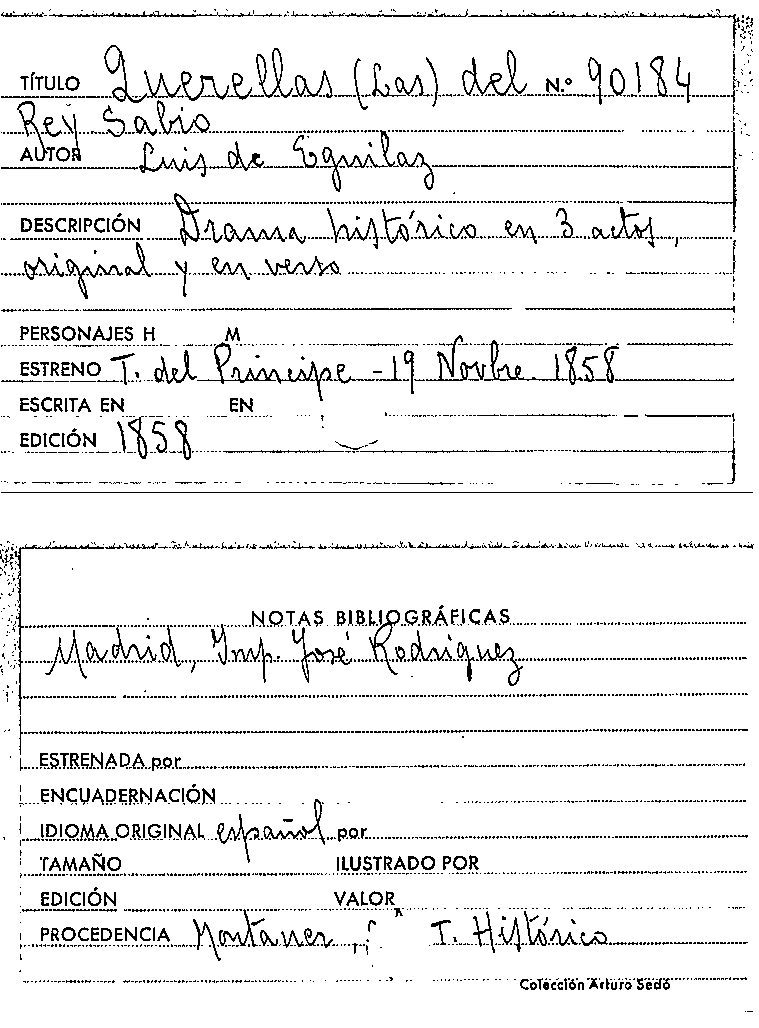 TÍTULO Querellas (Las) del N.º 90184
Rey Sabio
AUTOR Luis de Eguilaz
DESCRIPCIÓN Drama histórico en 3 actos,
original y en verso
PERSONAJES H M
ESTRENO T. del Principe - 19 Novbre. 1858
ESCRITA EN EN
EDICIÓN 1858
NOTAS BIBLIOGRÁFICAS
Madrid, Imp. José Rodriguez
ESTRENADA por
ENCUADERNACIÓN
IDIOMA ORIGINAL español por
TAMAÑO ILUSTRADO POR
EDICIÓN VALOR
PROCEDENCIA Montaner T. Histórico
Colección Arturo Sedó